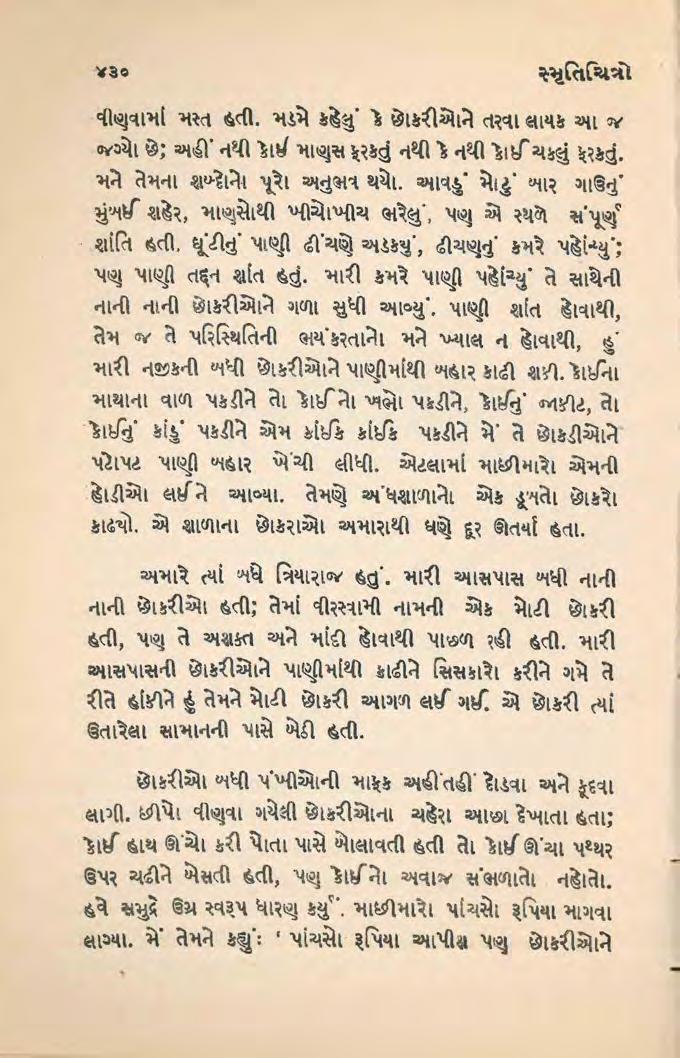 ૪૩૦ સ્મૃતિચિત્રો
વીણવામાં મસ્ત હતી. મડમે કહેલું કે છોકરીઓને તરવા લાયક આ જ
જગ્યા છે; અહીં નથી કોઈ માણસ ફરકતું નથી કે નથી કોઈ ચકલું ફરકતું.
મને તેમના શબ્દોનો પૂરો અનુભવ થયો. આવડું મોટું બાર ગાઉનું
મુંબઈ શહેર, માણસોથી ખીચોખીચ ભરેલું, પણ એ સ્થળે સંપૂર્ણ
શાંતિ હતી. ઘૂંટીનું પાણી ઢીંચણે અડકયું, ઢીચણનું કમરે પહોંચ્યું;
પણ પાણી તદ્દન શાંત હતું. મારી કમરે પાણી પહોંચ્યું તે સાથેની
નાની નાની છોકરીઓને ગળા સુધી આવ્યું. પાણી શાંત હોવાથી,
તેમ જ તે પરિસ્થિતિની ભયંકરતાનો મને ખ્યાલ ન હોવાથી, હું
મારી નજીકની બધી છોકરીઓને પાણીમાંથી બહાર કાઢી શકી. કોઈના
માથાના વાળ પકડીને તો કોઈનો ખભો પકડીને, કોઈનું જાકીટ, તો
કોઈનું કાંડું પકડીને એમ કાંઈક કાંઈક પકડીને મેં તે છોકડીઓને
પટોપટ પાણી બહાર ખેંચી લીધી. એટલામાં માછીમારો એમની
હોડીઓ લઈને આવ્યા. તેમણે અંધશાળાનો એક ડૂબતો છોકરો
કાઢયો. એ શાળાના છોકરાઓ અમારાથી ઘણે દૂર ઊતર્યા હતા.
અમારે ત્યાં બધે ત્રિયારાજ હતું. મારી આસપાસ બધી નાની
નાની છોકરીઓ હતી; તેમાં વીરસ્વામી નામની એક મોટી છોકરી
હતી, પણ તે અશક્ત અને માંદી હોવાથી પાછળ રહી હતી. મારી
આસપાસની છોકરીઓને પાણીમાંથી કાઢીને સિસકારો કરીને ગમે તે
રીતે હાંકીને હું તેમને મોટી છોકરી આગળ લઈ ગઈ. એ છોકરી ત્યાં
ઉતારેલા સામાનની પાસે બેઠી હતી.
છોકરીઓ બધી પંખીઓની માફક અહીંતહીં દોડવા અને કૂદવા
લાગી. છીપો વીણવા ગયેલી છોકરીઓના ચહેરા આછા દેખાતા હતા;
કોઈ હાથ ઊંચો કરી પોતા પાસે બોલાવતી હતી તો કોઈ ઊંચા પથ્થર
ઉપર ચઢીને બેસતી હતી, પણ કોઈનો અવાજ સંભળાતો નહોતો.
હવે સમુદ્રે ઉગ્ર સ્વરૂપ ધારણ કર્યું. માછીમારો પાંચસો રૂપિયા માગવા
લાગ્યા. મેં તેમને કહ્યું: ‘ પાંચસો રૂપિયા આપીશ પણ છોકરીઓને